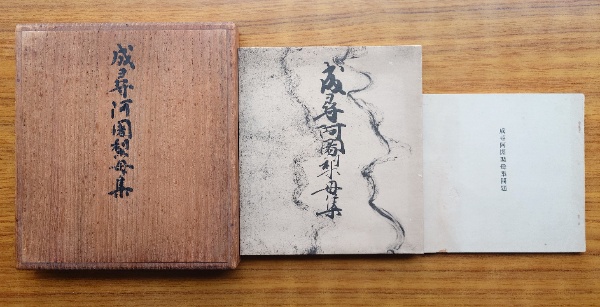 成尋阿闍梨母集
成尋阿闍梨母集
成尋阿闍梨母集解題